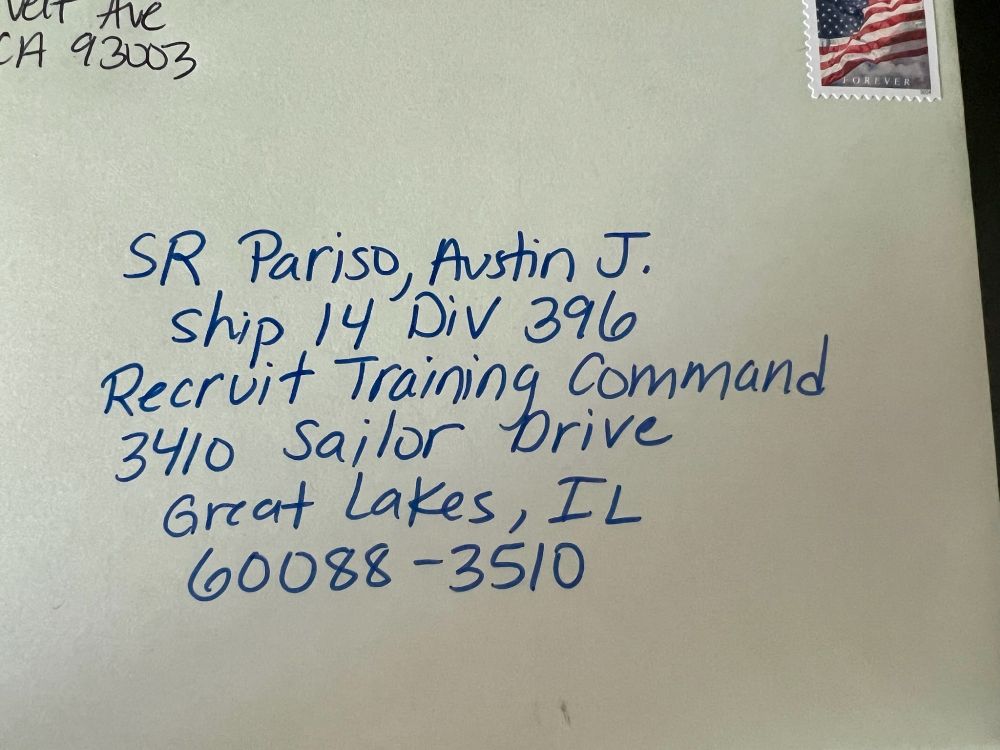 Ave
CA 93003
FOREVER
SR Pariso, Austin J.
Ship 14 Div 396
Recruit Training Command
3410 Sailor Drive
Great Lakes, IL
60088-3510